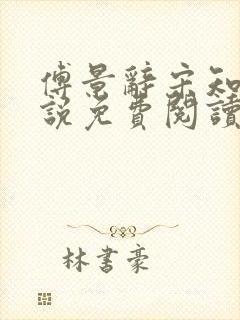 傅景辭宋知
說免費閱讀
林書豪